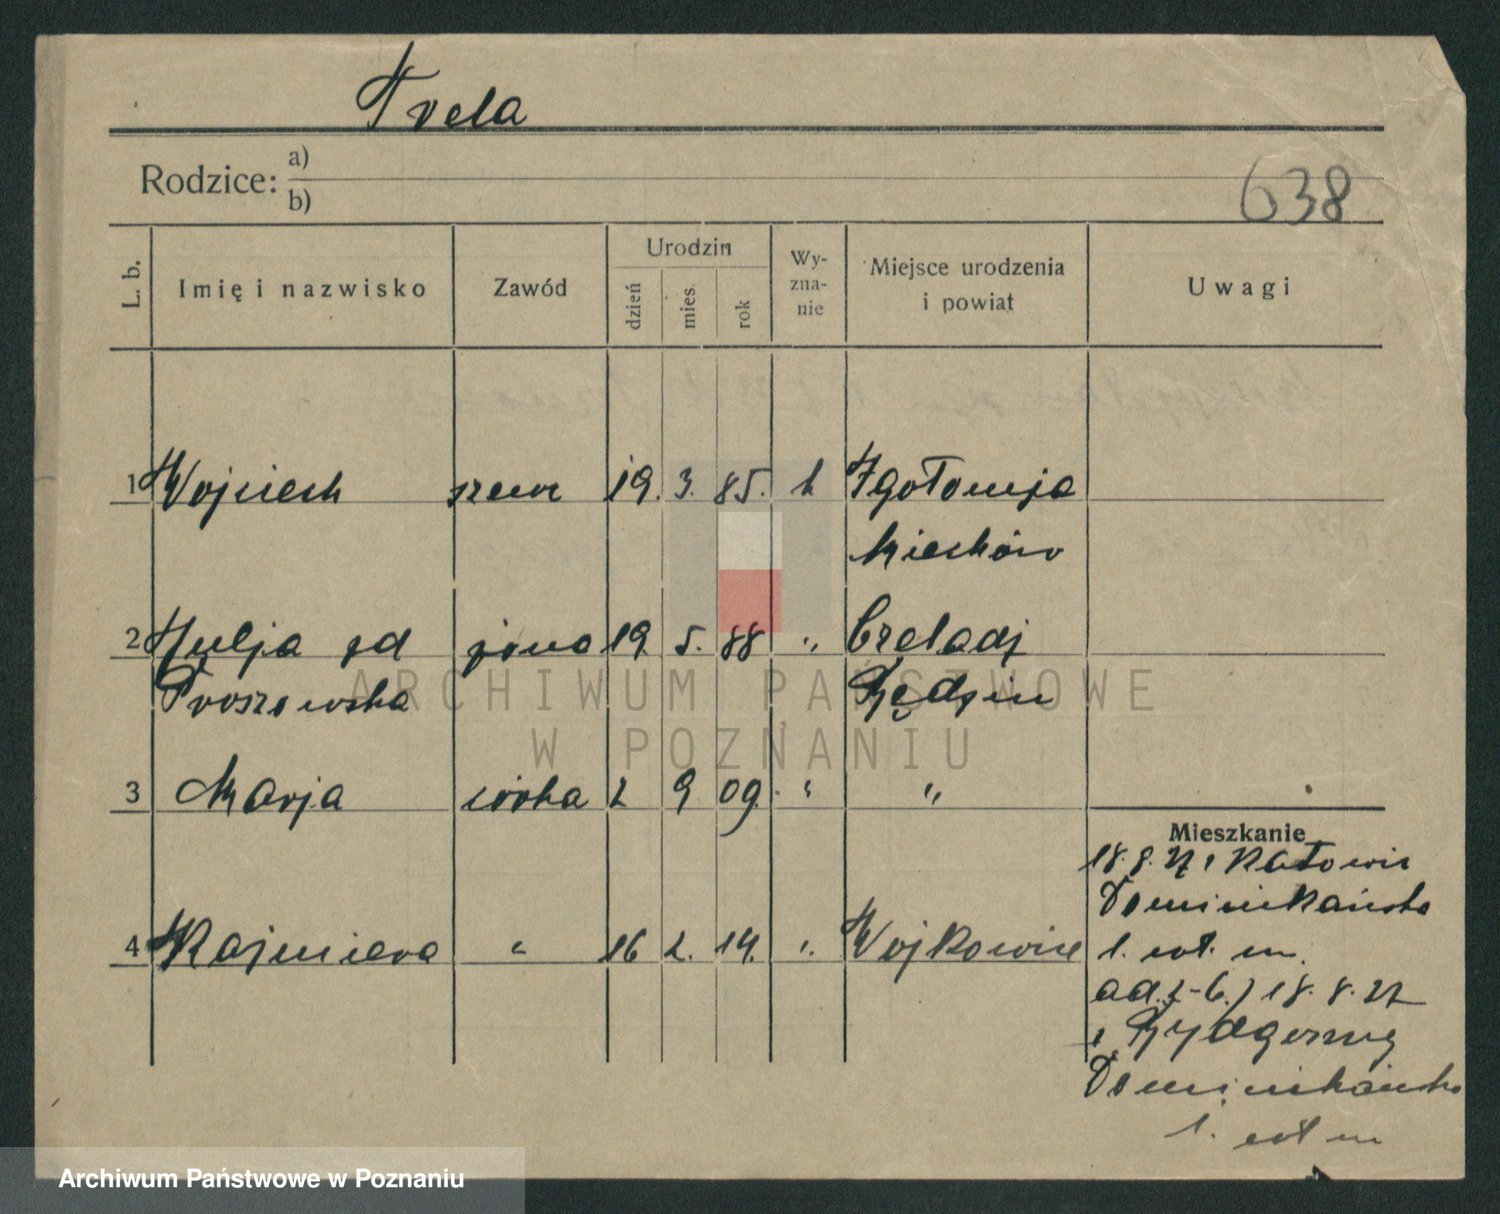 Trela
Rodzice: a)
b)
638
L. b.
Imię i nazwisko
Zawód
Urodzin
dzień
mies.
rok
Wy-
zna-
nie
Miejsce urodzenia
i powiat
Uwagi
1 Wojciech szewc 19. 3. 85. k Igołomja
Miechów
2 Julja zd żona 19 5. 88 " Czeladz
Proszowska Będzin
3 Marja córka 2 9 09. " "
Mieszkanie
18. 8. 27 z Katowic
Dominikańska
4 Kazimiera " 16 2. 14. " Wojkowice
1. m.
ad. 2-6.) 18. 8. 27
z Bydgoszczy
Dominikańska
1. m
ARCHIWUM PAŃSTWOWE
W POZNANIU
Archiwum Państwowe w Poznaniu